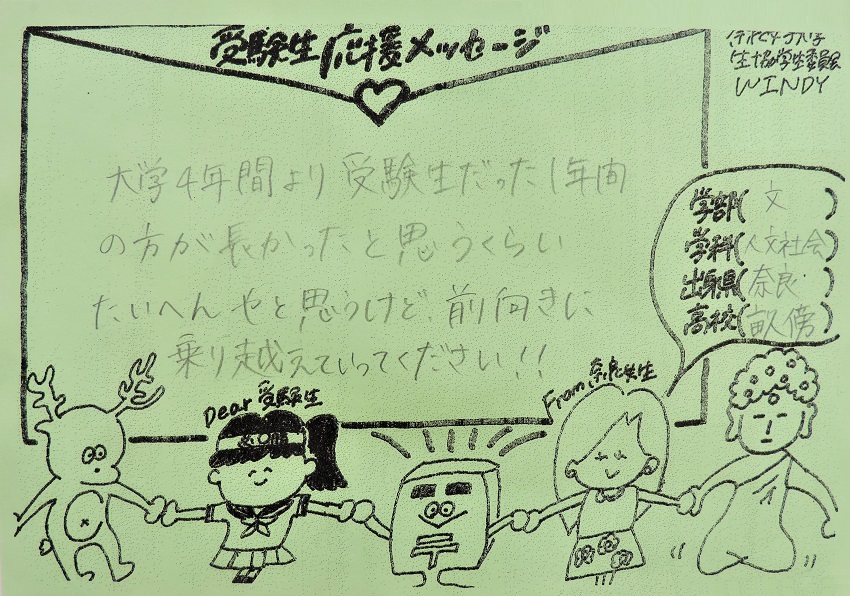 受験生応援メッセージ
生協学生委員会
WINDY
大学4年間より受験生だった1年間
の方が長かったと思うくらい
たいへんやと思うけど前向きに
乗り越えていってください!!
学部(文)
学科(人文社会)
出身県(奈良)
高校(畝傍)
Dear 受験生
From 奈良女生